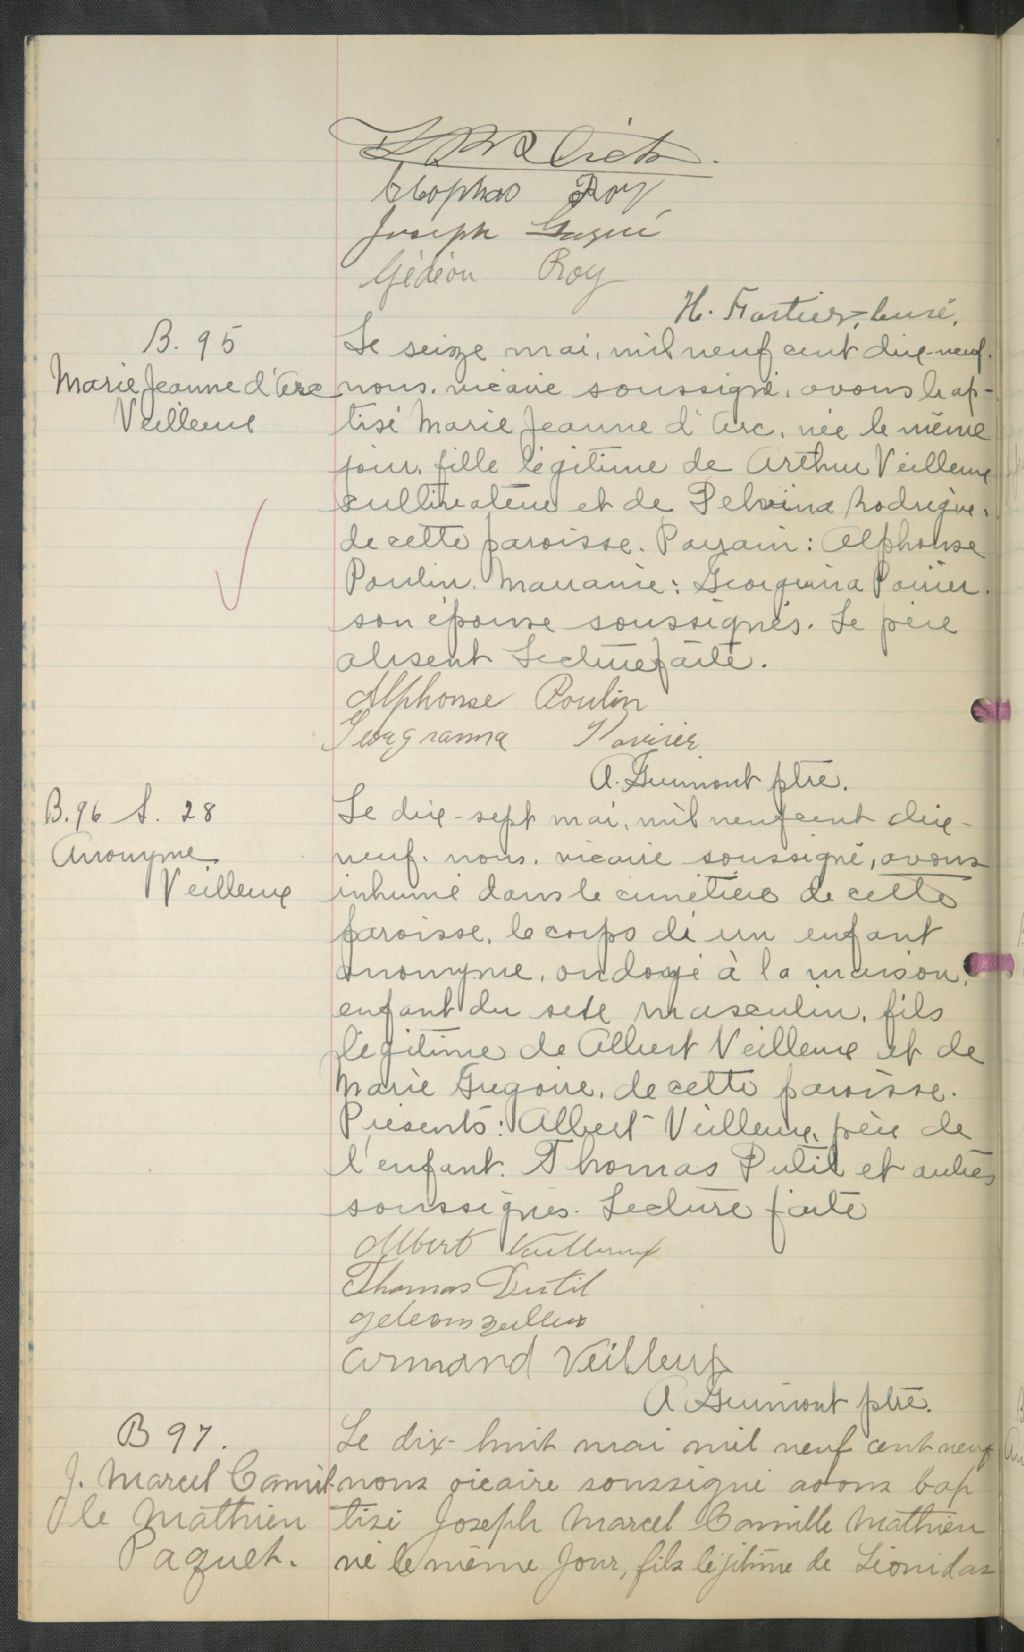 Cléophas Roy
Joseph Gagné
Gédéon Roy
H. Fortier, curé.
B. 95
Marie Jeanne d'Arc
Veilleux
Le seize mai, mil neuf cent dix-neuf.
nous, vicaire soussigné, avons bap-
tisé Marie Jeanne d'Arc, née le même
jour, fille légitime de Arthur Veilleux
cultivateur et de Rodrigue,
de cette paroisse. Parrain: Alphonse
Poulin. Marraine: Georgiana Poirier.
son épouse soussignés. Le père
absent Lecture faite.
Alphonse Poulin
Georgianna Poirier
A. Guimont ptre.
B. 96 S. 28
Anonyme
Veilleux
Le dix-sept mai, mil neuf cent dix-
neuf. nous, vicaire soussigné, avons
inhumé dans le cimetière de cette
paroisse, le corps de un enfant
anonyme, ondoyé à la maison,
enfant du sexe masculin, fils
légitime de Albert Veilleux et de
Marie Gregoire, de cette paroisse.
Présents: Albert Veilleux, père de
l'enfant. Thomas Dutil et autres
soussignés. Lecture faite
Albert Veilleux
Thomas Dutil
Armand Veilleux
A Guimont ptre.
B 97.
J. Marcel Camil
le Mathieu
Paquet.
Le dix-huit mai mil neuf cent neuf
nous vicaire soussigné avons bap
tisé Joseph Marcel Camille Mathieu
né le même jour, fils légitime de Léonidas